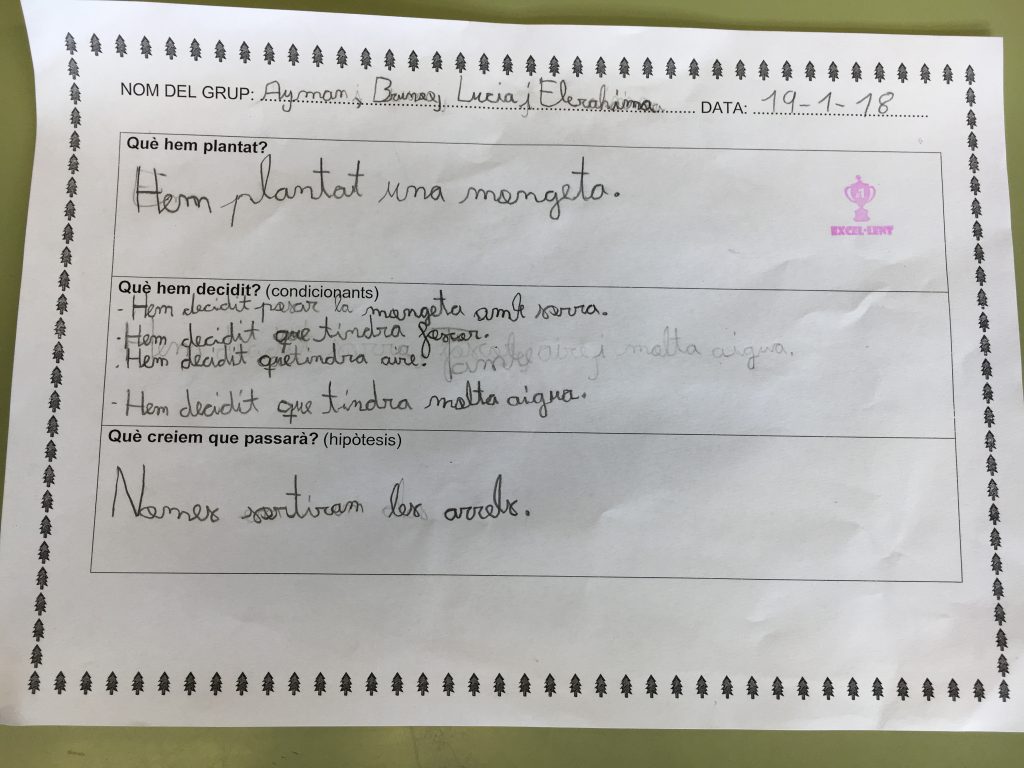 NOM DEL GRUP: Ayman, Lucia i DATA: 19-1-18
Què hem plantat?
Hem plantat una mongeta.
1
EXCEL·LENT
Què hem decidit? (condicionants)
- Hem decidit posar la mongeta amb sorra.
- Hem decidit que tindra foscor.
. Hem decidit que tindra aire. aire i molta aigua.
- Hem decidit que tindra molta aigua.
Què creiem que passarà? (hipòtesis)
Nomes sortiram les arrels.